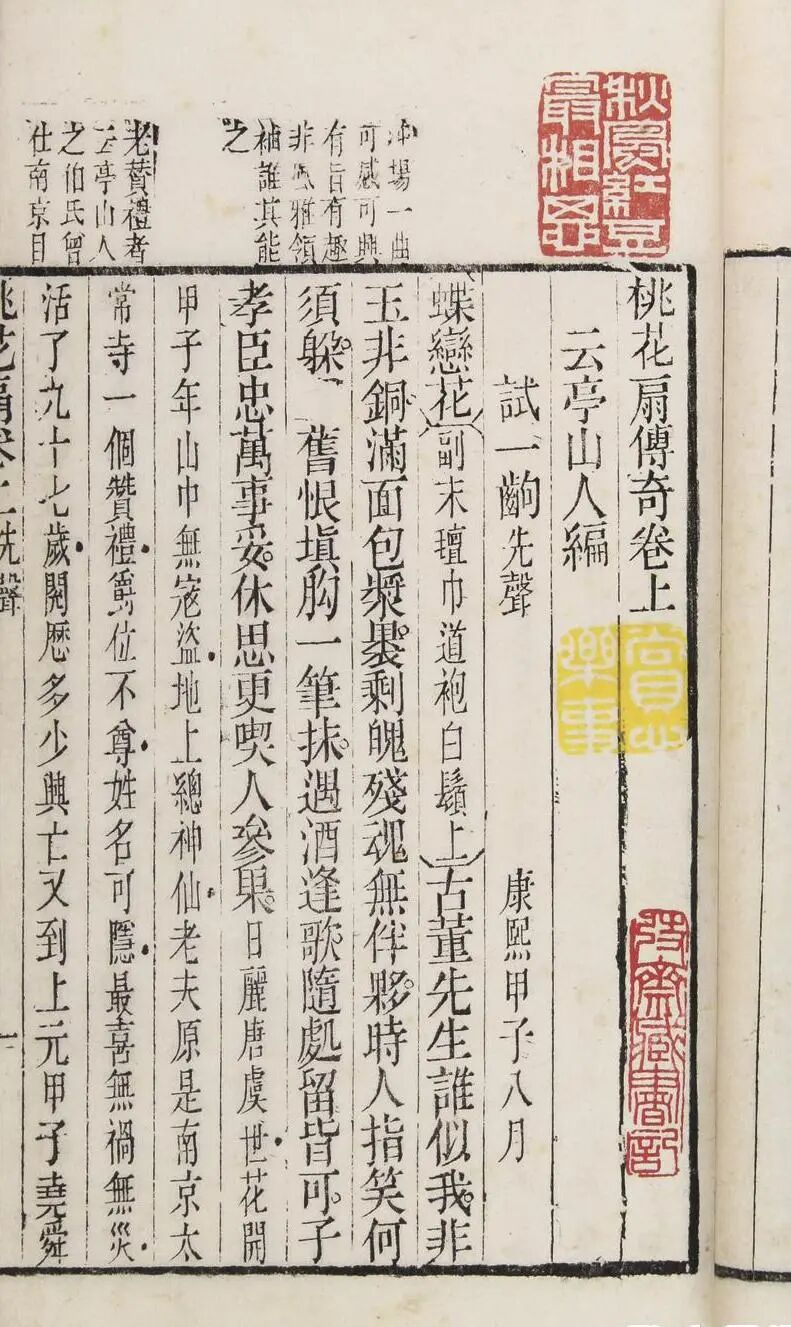 秋風紅豆
最相思
桃花扇傳奇卷上
賞心
樂事
齋藏書記
云亭山人編
試一齣先聲　康熙甲子八月
蝶戀花〔副末氊巾道袍白鬚上〕古董先生誰似我非
玉非銅滿面包漿裹剩魄殘魂無伴夥時人指笑何
須躲　舊恨填胸一筆抹遇酒逢歌隨處留皆可子
孝臣忠萬事妥休思更喫人參果日麗唐虞世花開
甲子年山中無寇盜地上總神仙老夫原是南京太
常寺一個贊禮爵位不尊姓名可隱最喜無禍無災
活了九十七歲閱歷多少興亡又到上元甲子堯舜
桃花扇卷上先聲　一
冲場一曲
可感可興
有旨有趣
非風雅領
袖誰其能
之
老贊禮者
云亭山人
之伯氏曾
仕南京目